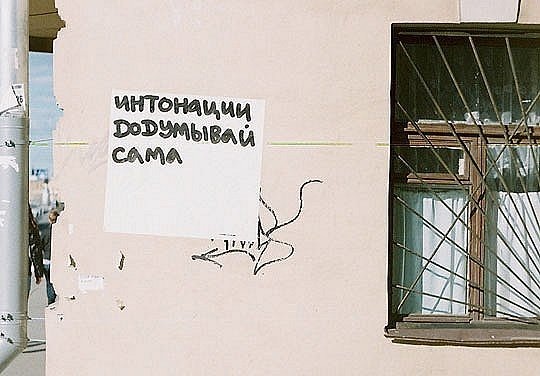 ИНТОНАЦИИ
ДОДУМЫВАЙ
САМА